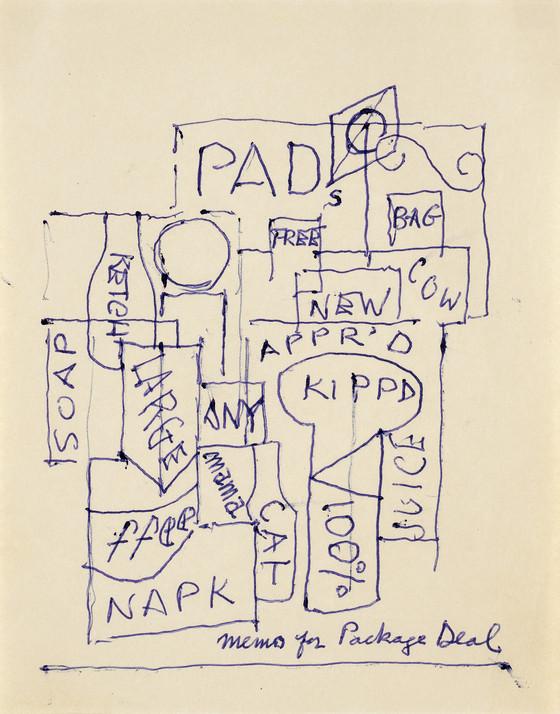 PAD
S
BAG
FREE
COW
NEW
KETCH
APPR'D
SOAP
LARGE
ANY
KIPPD
JUICE
mama
ffee
CAT
100%
NAPK
memo for Package Deal